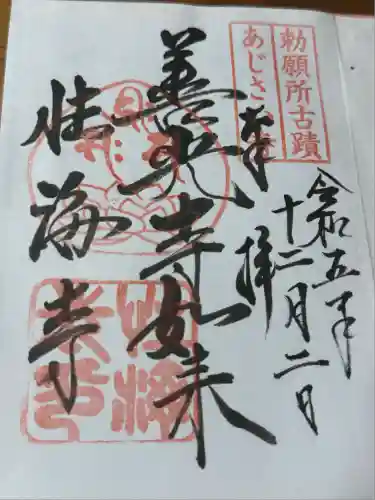 勅願所古蹟
あじさ
令和五年
十二月二日
奉拝
善光寺如来
性海寺